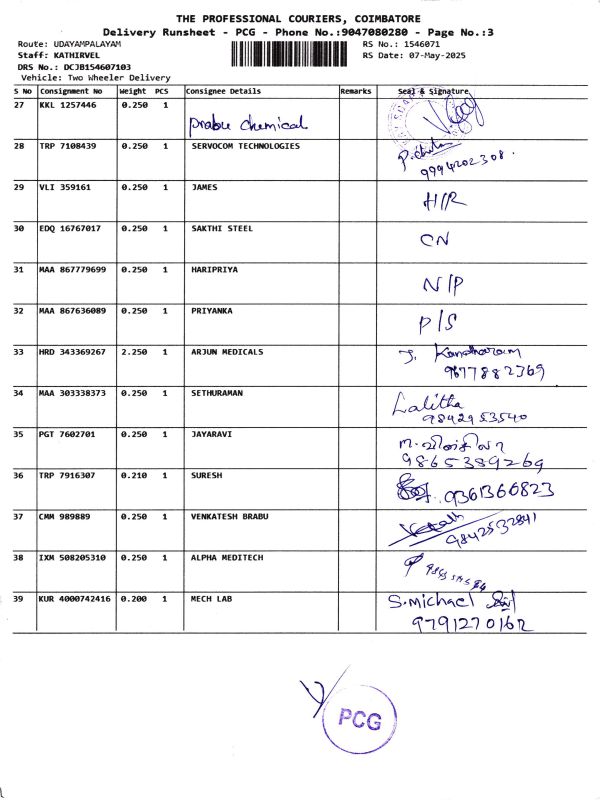 THE PROFESSIONAL COURIERS, COIMBATORE
Delivery Runsheet - PCG - Phone No.:9047080280 - Page No.:3
Route: UDAYAMPALAYAM RS No.: 1546071
Staff: KATHIRVEL RS Date: 07-May-2025
DRS No.: DCJB154607103
Vehicle: Two Wheeler Delivery
S No Consignment No Weight PCS Consignee Details Remarks Seal & Signature
27 KKL 1257446 0.250 1
Prabu chemical
28 TRP 7108439 0.250 1 SERVOCOM TECHNOLOGIES
9994202308.
29 VLI 359161 0.250 1 JAMES
H/R
30 EDQ 16767017 0.250 1 SAKTHI STEEL
CN
31 MAA 867779699 0.250 1 HARIPRIYA
N/P
32 MAA 867636089 0.250 1 PRIYANKA
P/S
33 HRD 343369267 2.250 1 ARJUN MEDICALS
9677882769
34 MAA 303338373 0.250 1 SETHURAMAN
Lalitha
9842953540
35 PGT 7602701 0.250 1 JAYARAVI
9865389269
36 TRP 7916307 0.210 1 SURESH
9361366823
37 CMM 989889 0.250 1 VENKATESH BRABU
9842532841
38 IXM 508205310 0.250 1 ALPHA MEDITECH
39 KUR 4000742416 0.200 1 MECH LAB
S.Michael
9791270162
PCG